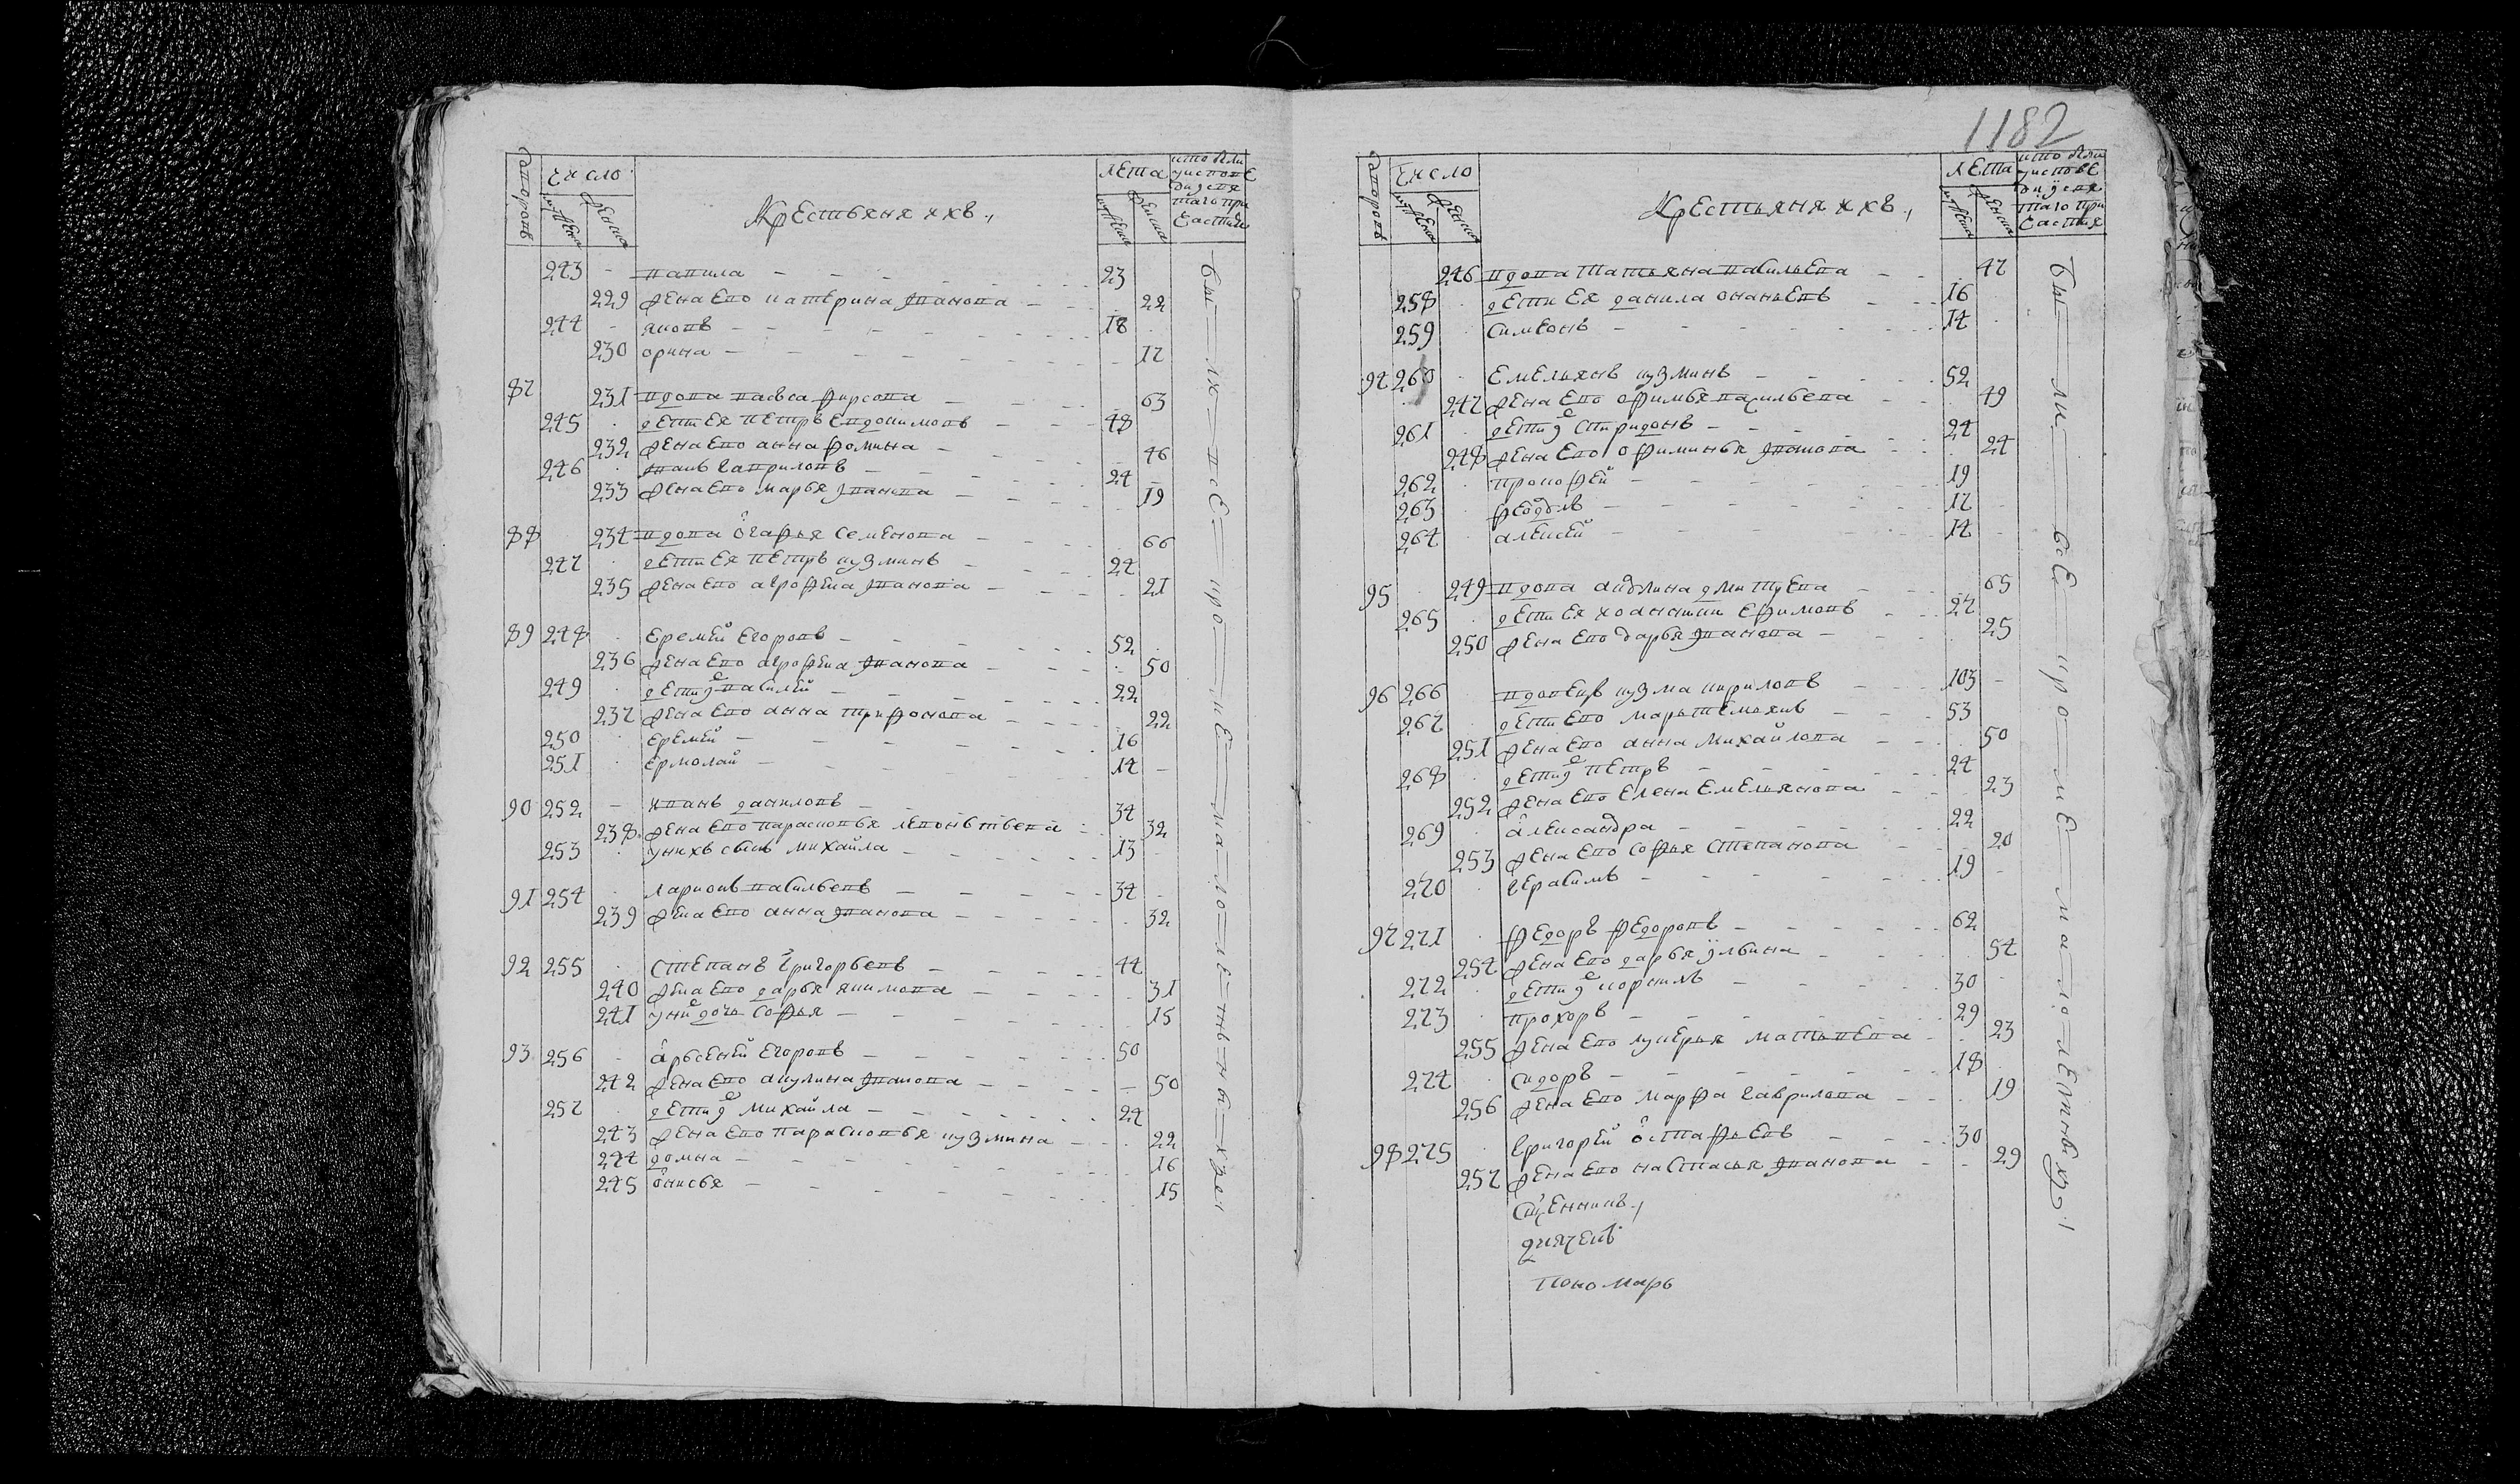 1182
дворовъ
число
мужеска
женска
Крестьяня и ихъ
лета
мужеска
женска
кто были
у испове
ди и свя
таго при
частия
243 вавила 23
229 жена ево катерина иванова 22
244 яковъ 18
230 орина 17
87 231 вдова фирсова 63
245 дети ея петръ евдокимовъ 48
232 жена ево анна фомина 46
246 гавриловъ 24
233 жена ево марья иванова 19
88 234 вдова огафья семенова 66
247 дети ея петръ кузминъ 24
235 жена ево агрофена иванова 21
89 248 еремей егоровъ 52
236 жена ево агрофена иванова 50
249 дети ихъ василей 22
237 жена ево анна трифонова 22
250 еремей 16
251 ермолай 14
90 252 иванъ даниловъ 34
238 жена ево парасковья леонътьева 32
253 у нихъ сынъ михайла 13
91 254 ларионъ васильевъ 34
239 жена ево анна иванова 32
92 255 степанъ григорьевъ 44
240 жена ево дарья якимова 31
241 у ние дочь софья 15
93 256 арьсеней егоровъ 50
242 жена ево акулина иванова 50
257 дети ихъ михайла 24
243 жена ево парасковья кузмина 22
244 домна 16
245 онисья 15
бы ли все кро ме ма ло ле тнъ н ы хъ
дворовъ
число
мужеска
женска
Крестьяня и ихъ
лета
мужеска
женска
кто были
у исповЕ
ди и свя
таго при
частия
246 вдова татьяна васильева 47
258 дети ея данила онаньевъ 16
259 симеонъ 14
94 260 емельянъ кузминъ 52
247 жена ево офимья васильева 49
261 дети ихъ спиридонъ 24
248 жена ево офиминья иванова 24
262 прокофей 19
263 феодоръ 17
264 алексей 14
95 249 вдова акулина дмитреева 65
265 дети ея ефимовъ 27
250 жена ево дарья иванова 25
96 266 вдовецъ кузма кириловъ 103
267 дети ево мартемьянъ 53
251 жена ево анна михайлова 50
268 дети ихъ петръ 24
252 жена ево елена емельянова 23
269 александра 22
253 жена ево софья степанова 20
270 герасимъ 19
97 271 федоръ федоровъ 62
254 жена ево дарья ульвина 54
272 дети ихъ корнилъ 30
273 прохоръ 29
255 жена ево лукерья матвеева 23
274 сидоръ 18
256 жена ево марфа гаврилова 19
98 275 григорей остафьевъ 30
257 жена ево настасья иванова 29
бы ли все кро ме ма ло летнихъ
Священникъ
диячекъ
пономарь